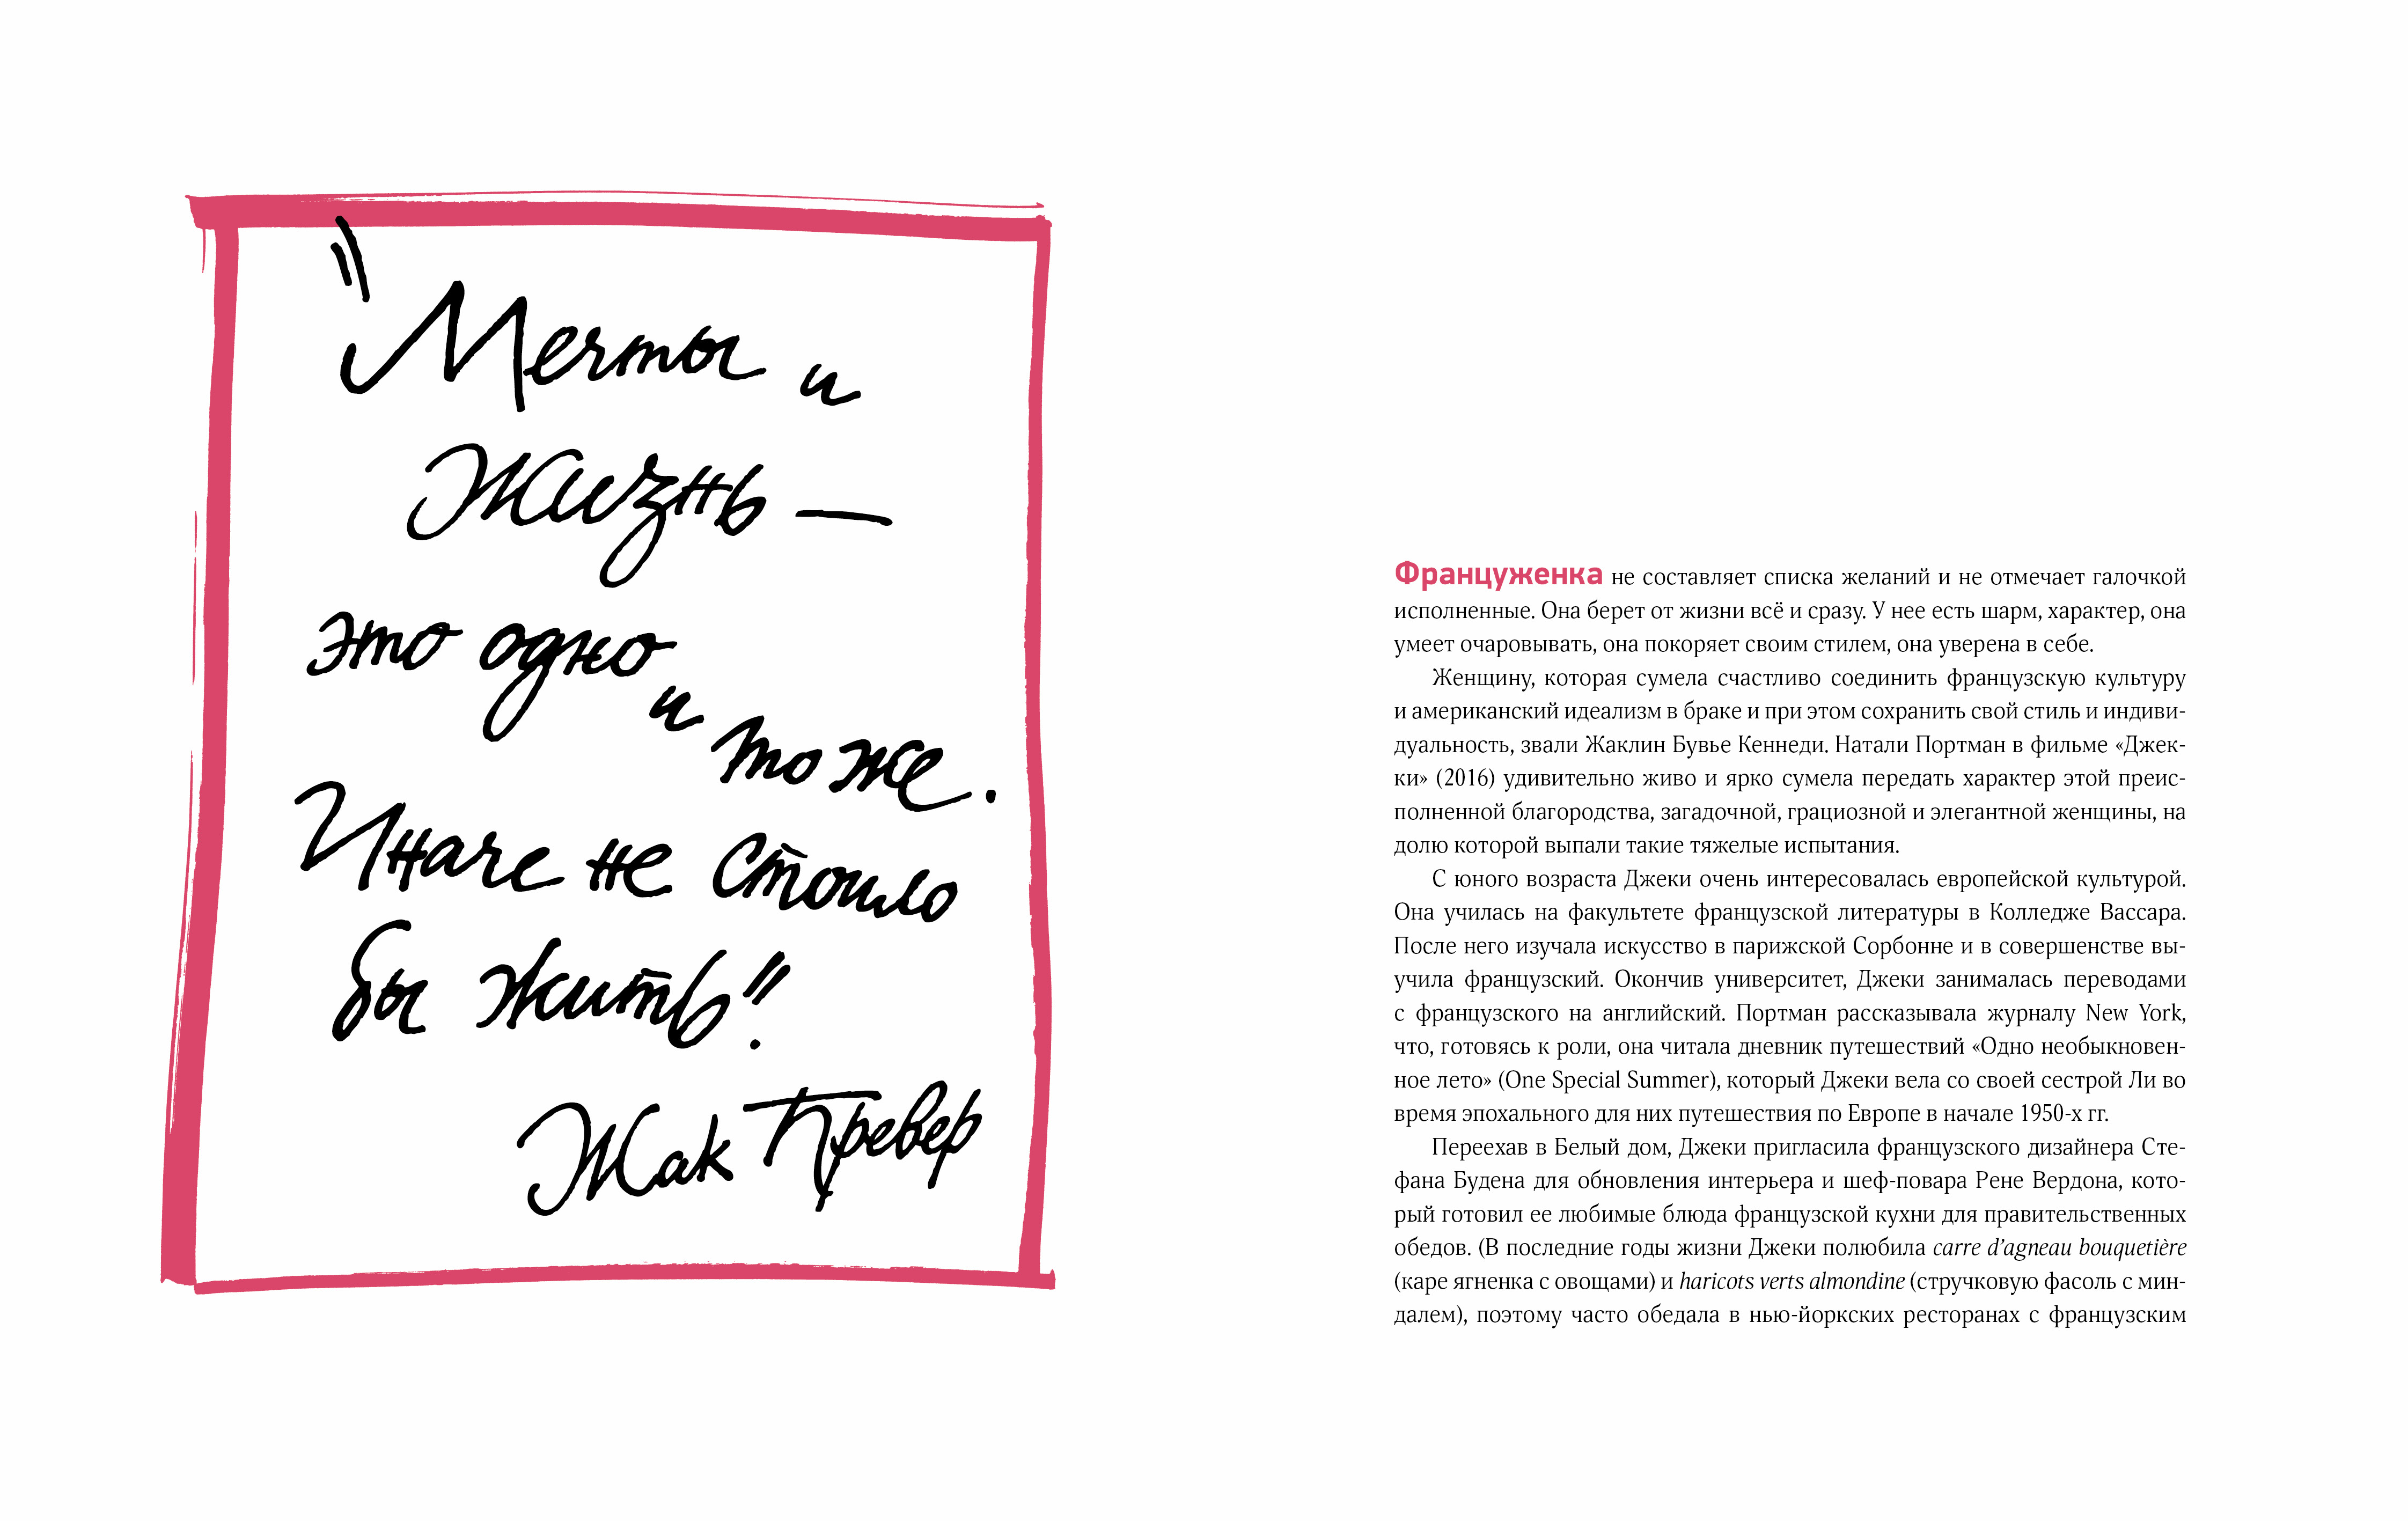 "Мечты и
Жизнь —
это одно
и то же.
Иначе не стоило
бы жить!"
Жак Превер
Француженка не составляет списка желаний и не отмечает галочкой
исполненные. Она берет от жизни всё и сразу. У нее есть шарм, характер, она
умеет очаровывать, она покоряет своим стилем, она уверена в себе.
Женщину, которая сумела счастливо соединить французскую культуру
и американский идеализм в браке и при этом сохранить свой стиль и индиви-
дуальность, звали Жаклин Бувье Кеннеди. Натали Портман в фильме «Джек-
ки» (2016) удивительно живо и ярко сумела передать характер этой преис-
полненной благородства, загадочной, грациозной и элегантной женщины, на
долю которой выпали такие тяжелые испытания.
С юного возраста Джеки очень интересовалась европейской культурой.
Она училась на факультете французской литературы в Колледже Вассара.
После него изучала искусство в парижской Сорбонне и в совершенстве вы-
учила французский. Окончив университет, Джеки занималась переводами
с французского на английский. Портман рассказывала журналу New York,
что, готовясь к роли, она читала дневник путешествий «Одно необыкновен-
ное лето» (One Special Summer), который Джеки вела со своей сестрой Ли во
время эпохального для них путешествия по Европе в начале 1950-х гг.
Переехав в Белый дом, Джеки пригласила французского дизайнера Сте-
фана Будена для обновления интерьера и шеф-повара Рене Вердона, кото-
рый готовил ее любимые блюда французской кухни для правительственных
обедов. (В последние годы жизни Джеки полюбила carre d'agneau bouquetière
(каре ягненка с овощами) и haricots verts almondine (стручковую фасоль с мин-
далем), поэтому часто обедала в нью-йоркских ресторанах с французским